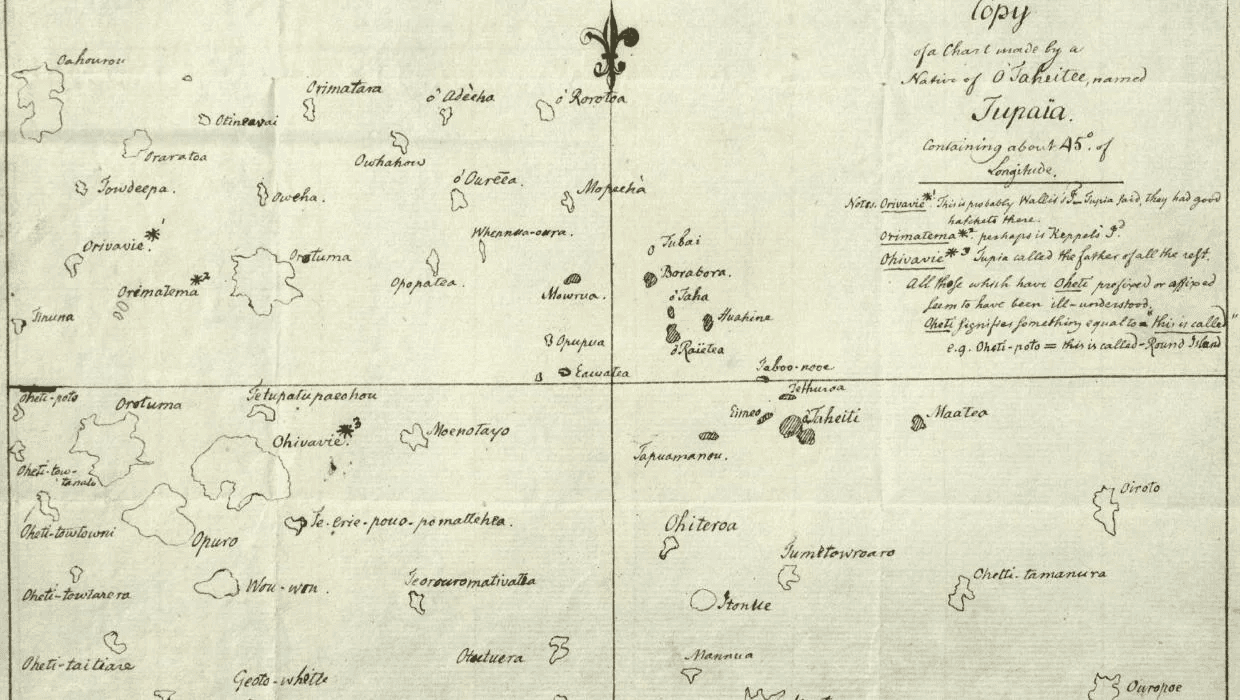 Copy
of a Chart made by a
Native of O'Taheitee, named
Tupaïa.
Containing about 45° of
Longitude.
Notes. Orivavie *1. This is probably Wallis's Id_ Tupia said, they had good
hatchets there.
Orimatema *2. perhaps is Keppel's Id
Ohivavie *3 Tupia called the father of all the rest.
All those which have Oheti prefixed or affixed
seem to have been ill-understood.
Oheti signifies something equal to = "this is called"
e.g. Oheti-poto = this is called-Round Island
Oahourou
Orimatara
ō Adēeha
ō Rorotoa
Otineavai
Oraratoa
Owhahow
Towdeepa.
Oweha.
ō Oureea.
Mopeehà
Orivavie *1
Whennua-oura.
Tubai
Orotuma
Orematema *2
Opopatea.
Borabora.
Mowrua.
ō Taha
Tinuna
Huahine
Opupua
ō Raietea
Eawatea
Taboo-nooe
Oheti-poto
Orotuma
Tetupatupaeohou
Tethuroa
Eimeo
ō Taheiti
Maatea
Ohivavie *3
Moenotayo
Tapuamanou.
Oheti-tow-
tanalu
Oiroto
Oheti-towtowni
Opuro
Te-erie-pouo-pomattehea.
Ohiteroa
Tumetowroaro
Oheti-towtarera
Wou-wou.
Teorouromativatea
Itonue
Ohetti-tamanura
Oheti-taitiare
Otootuera
Mannua
Geoto-whitte
Ouropoe